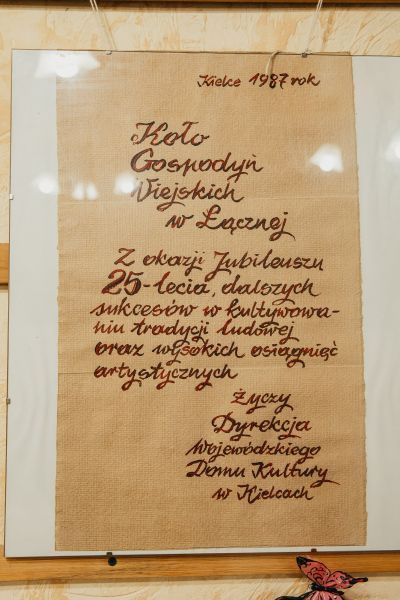 Kielce 1987 rok
Koło
Gospodyń
Wiejskich
w Łącznej
Z okazji Jubileuszu
25-lecia, dalszych
sukcesów w kultywowa-
niu tradycji ludowej
oraz wysokich osiągnięć
artystycznych
Życzy
Dyrekcja
Wojewódzkiego
Domu Kultury
w Kielcach